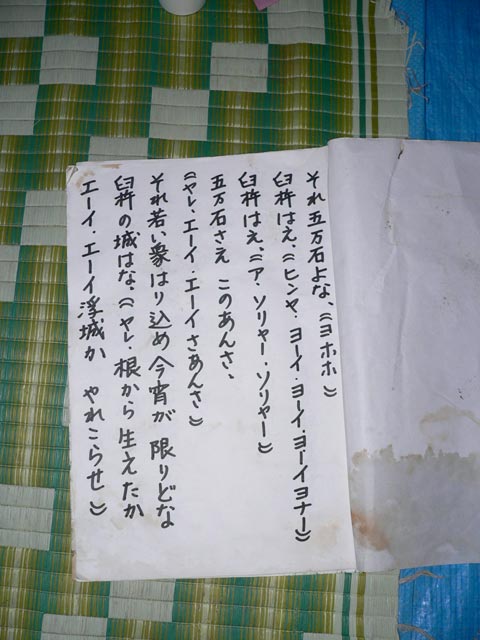 それ五万石よな、《ヨホホ》
臼杵はえ、《ヒンヤ・ヨーイ・ヨーイ・ヨーイヨナー》
臼杵はえ、《ア・ソリャー・ソリャー》
五万石さえ このあんさ、
《ヤレ・エーイ・エーイさあんさ》
それ若い衆はり込め 今宵が 限りどな
臼杵の城はな、《ヤレ・根から生えたか
エーイ・エーイ浮城か やれこらせ》